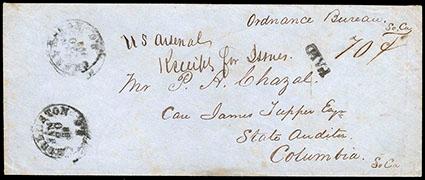 Ordnance Bureau.
So Ca
70¢
US Arsenal
Receipts for Issues.
PAID
Mr P. A. Chazal.
Care James Tupper Esqr
State Auditor
Columbia.
So Ca
CHARLESTON